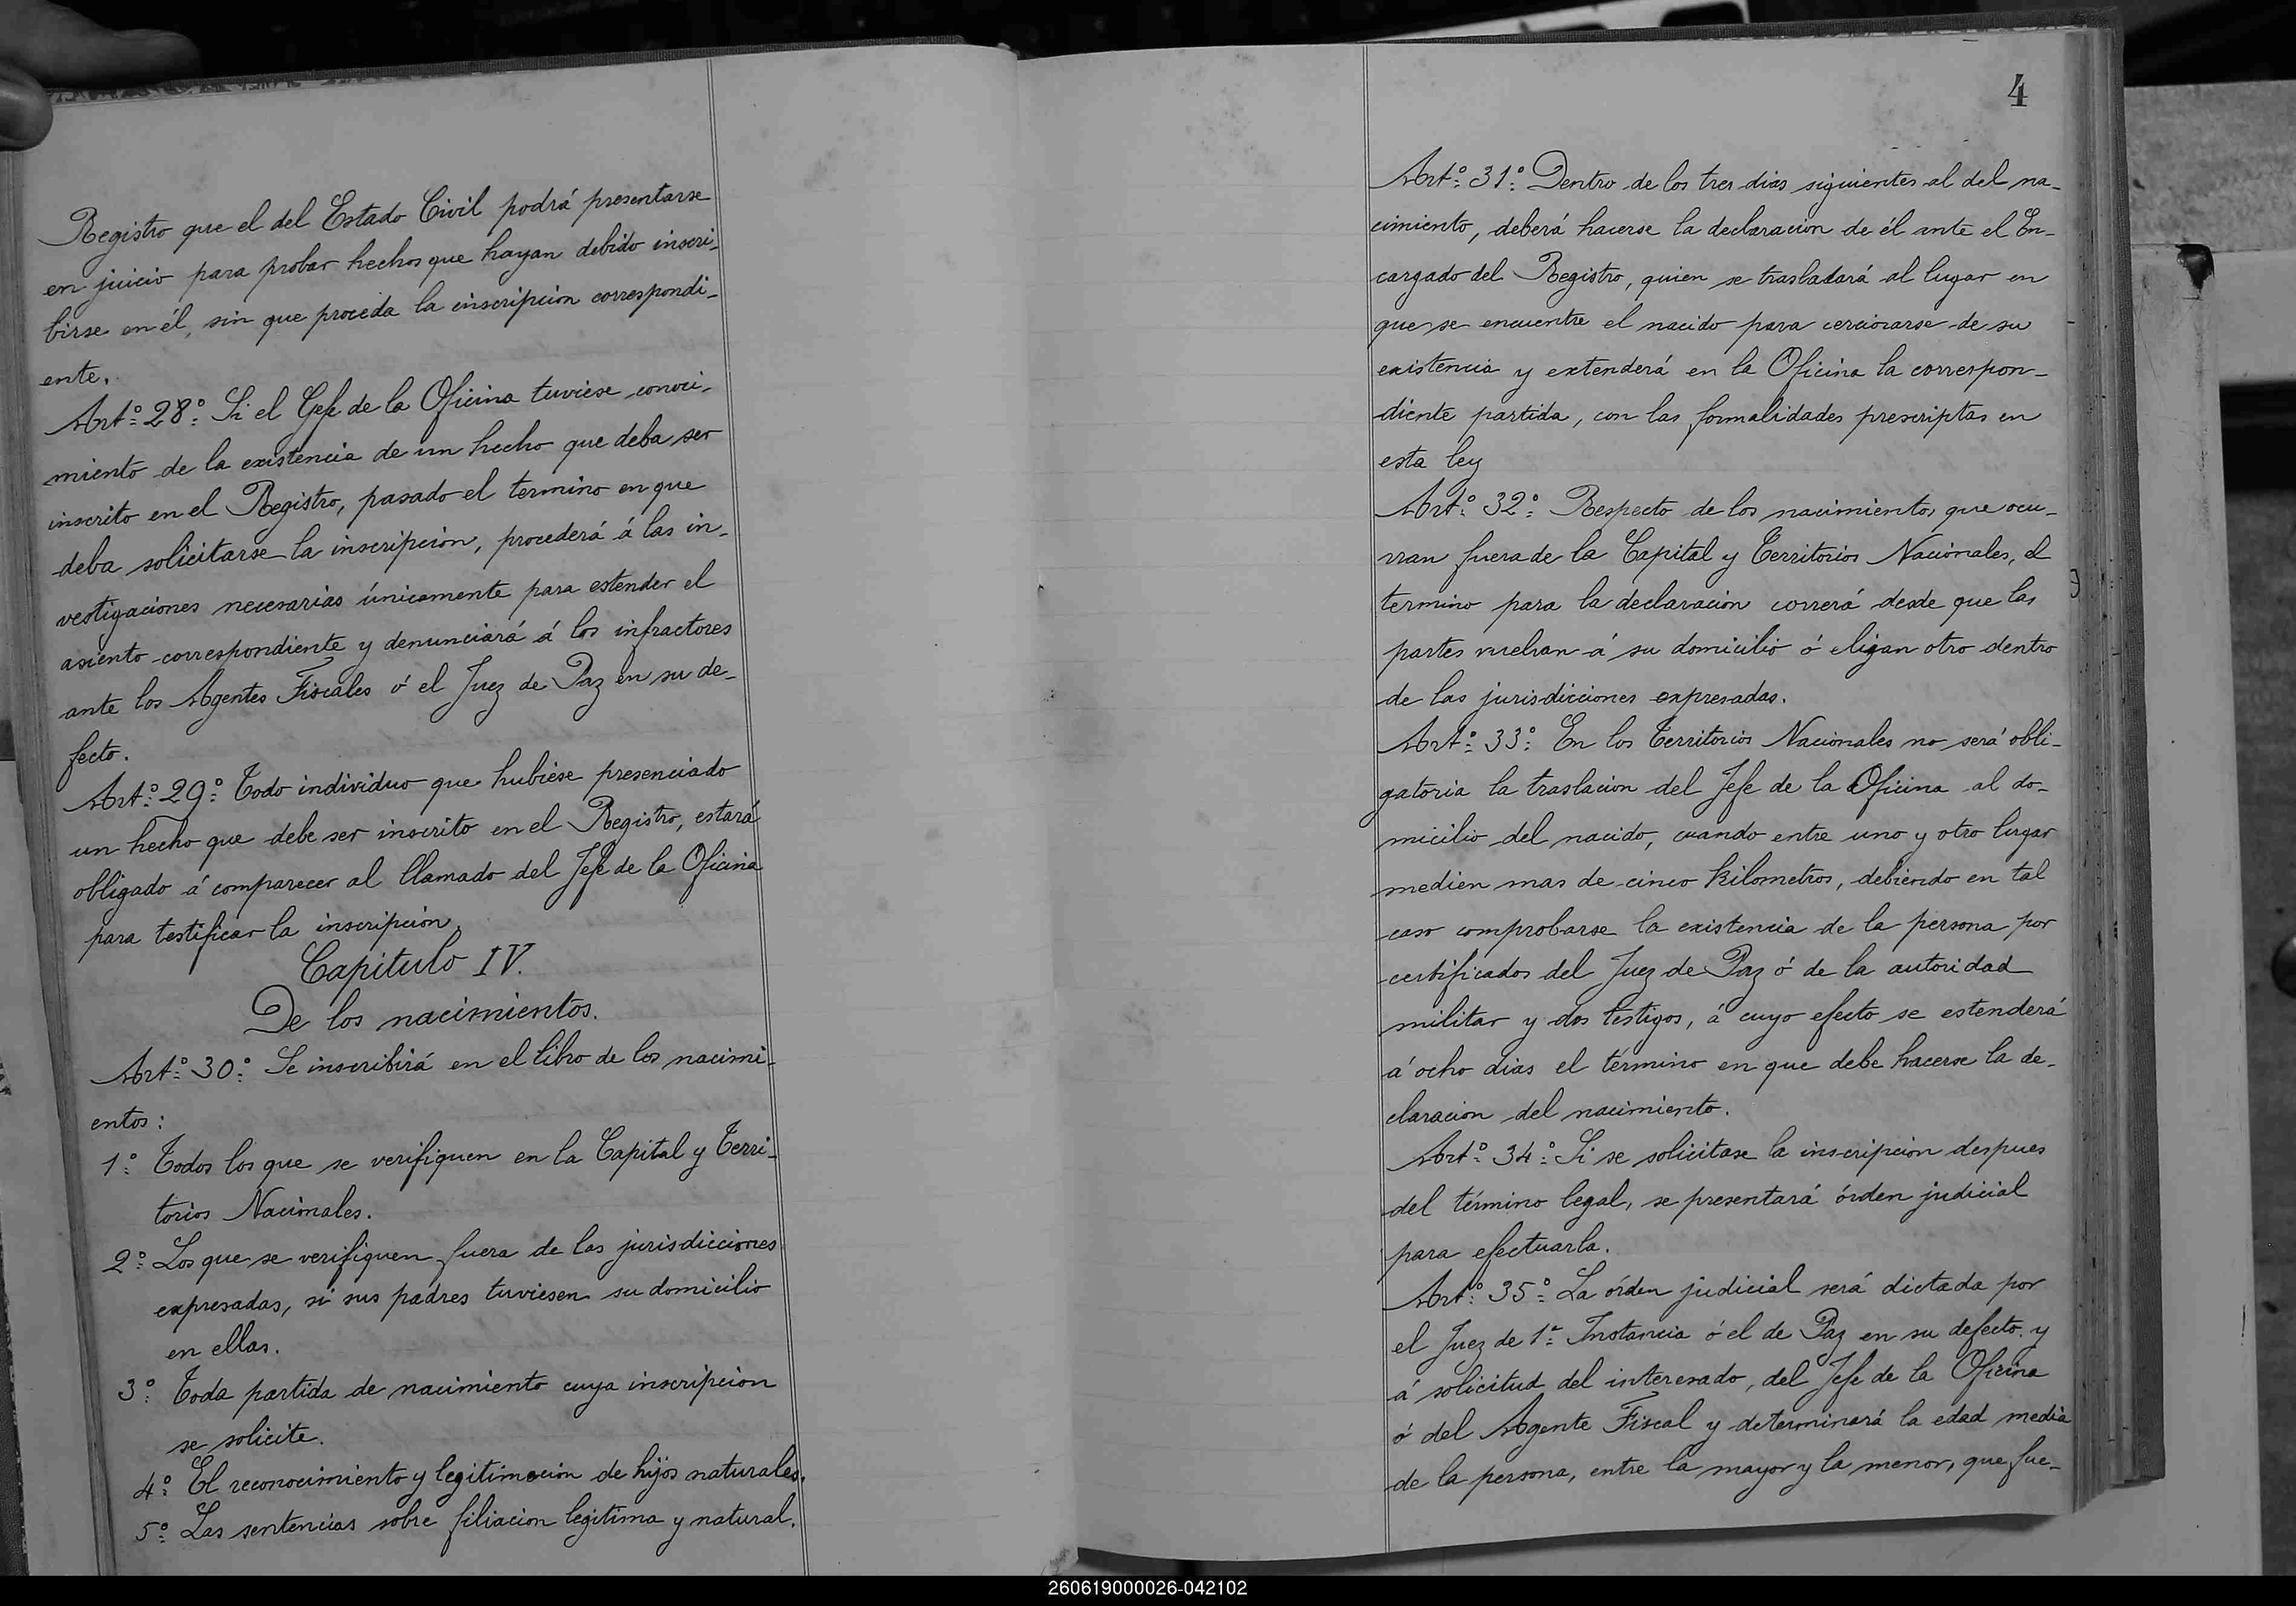 Registro que el del Estado Civil podrá presentarse
en juicio para probar hechos que hayan debido inscri-
birse en él, sin que proceda la inscripcion correspondi-
ente.
Art.º 28.º Si el Gefe de la Oficina tuviese conoci-
miento de la existencia de un hecho que deba ser
inscrito en el Registro, pasado el termino en que
deba solicitarse la inscripcion, procederá á las in-
vestigaciones necesarias únicamente para estender el
asiento correspondiente y denunciará á los infractores
ante los Agentes Fiscales ó el Juez de Paz en su de-
fecto.
Art.º 29.º Todo individuo que hubiese presenciado
un hecho que debe ser inscrito en el Registro, estará
obligado á comparecer al llamado del Jefe de la Oficina
para testificar la inscripcion.
Capitulo IV.
De los nacimientos.
Art.º 30.º Se inscribirá en el libro de los nacimi-
entos:
1.º Todos los que se verifiquen en la Capital y Terri-
torios Nacionales.
2.º Los que se verifiquen fuera de las jurisdicciones
expresadas, si sus padres tuviesen su domicilio
en ellas.
3.º Toda partida de nacimiento cuya inscripcion
se solicite.
4.º El reconocimiento y legitimacion de hijos naturales.
5.º Las sentencias sobre filiacion legitima y natural.
4
Art.º 31.º Dentro de los tres dias siguientes al del na-
cimiento, deberá hacerse la declaracion de él ante el En-
cargado del Registro, quien se trasladará al lugar en
que se encuentre el nacido para cerciorarse de su
existencia y extenderá en la Oficina la correspon-
diente partida, con las formalidades prescriptas en
esta ley
Art.º 32.º Respecto de los nacimientos que ocu-
rran fuera de la Capital y Territorios Nacionales, el
termino para la declaracion correrá desde que las
partes vuelvan á su domicilio ó elijan otro dentro
de las jurisdicciones expresadas.
Art.º 33.º En los Territorios Nacionales no será obli-
gatoria la traslacion del Jefe de la Oficina al do-
micilio del nacido, cuando entre uno y otro lugar
medien mas de cinco kilometros, debiendo en tal
caso comprobarse la existencia de la persona por
certificados del Juez de Paz ó de la autoridad
militar y dos testigos, á cuyo efecto se estenderá
á ocho dias el término en que debe hacerse la de-
claracion del nacimiento.
Art.º 34.º Si se solicitase la inscripcion despues
del término legal, se presentará órden judicial
para efectuarla.
Art.º 35.º La órden judicial será dictada por
el Juez de 1.ª Instancia ó el de Paz en su defecto y
á solicitud del interesado, del Jefe de la Oficina
ó del Agente Fiscal y determinará la edad media
de la persona, entre la mayor y la menor, que fue-
260619000026-042102